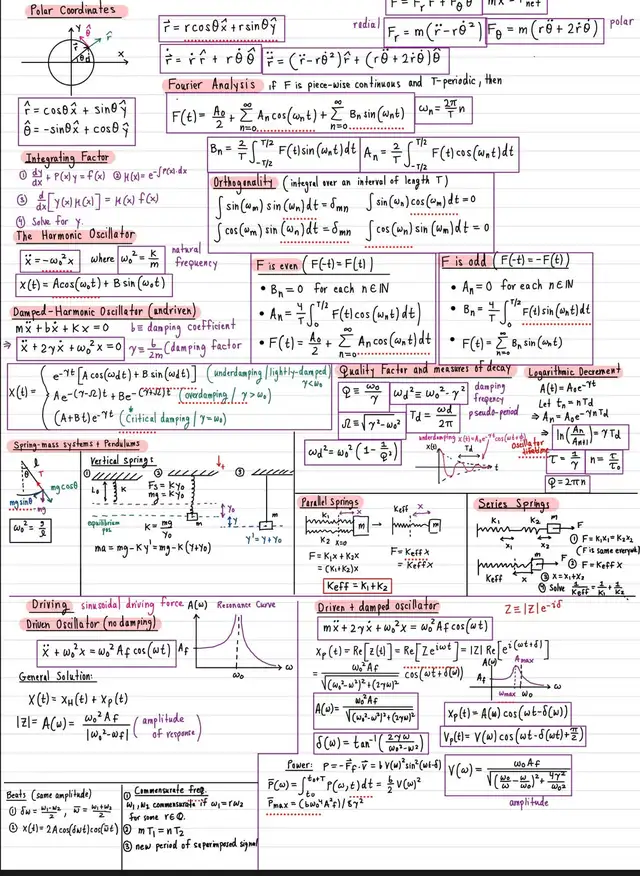 Polar Coordinates
y
x
r̂ = cosθ x̂ + sinθ ŷ
θ̂ = -sinθ x̂ + cosθ ŷ
r⃗ = rcosθ x̂ + rsinθ ŷ
radial
F_r = m(r̈ - rθ̇²)
F_θ = m(rθ̈ + 2ṙθ̇)
polar
r⃗̇ = ṙ r̂ + rθ̇ θ̂
r⃗̈ = (r̈ - rθ̇²)r̂ + (rθ̈ + 2ṙθ̇)θ̂
Fourier Analysis if F is piece-wise continuous and T-periodic, then
F(t) = A₀/2 + Σ_{n=0}^∞ A_n cos(ω_n t) + Σ_{n=0}^∞ B_n sin(ω_n t)
ω_n = 2π/T n
B_n = 2/T ∫_{-T/2}^{T/2} F(t) sin(ω_n t) dt
A_n = 2/T ∫_{-T/2}^{T/2} F(t) cos(ω_n t) dt
Integrating Factor
① dy/dx + P(x)y = f(x) ② μ(x) = e^{-∫P(x)dx}
③ d/dx [y(x) μ(x)] = μ(x) f(x)
④ Solve for y.
Orthogonality (integral over an interval of length T)
∫ sin(ω_m) sin(ω_n) dt = δ_mn ∫ sin(ω_n) cos(ω_m) dt = 0
∫ cos(ω_m) sin(ω_n) dt = δ_mn ∫ cos(ω_n) sin(ω_m) dt = 0
The Harmonic Oscillator
ẍ = -ω₀² x where ω₀² = K/m natural frequency
x(t) = Acos(ω₀t) + Bsin(ω₀t)
F is even (F(-t) = F(t))
• B_n = 0 for each n∈ℕ
• A_n = 4/T ∫_0^{T/2} F(t) cos(ω_n t) dt
• F(t) = A₀/2 + Σ_{n=0}^∞ A_n cos(ω_n t) dt
F is odd (F(-t) = -F(t))
• A_n = 0 for each n∈ℕ
• B_n = 4/T ∫_0^{T/2} F(t) sin(ω_n t) dt
• F(t) = Σ_{n=0}^∞ B_n sin(ω_n t)
Damped-Harmonic Oscillator (undriven)
mẍ + bẋ + Kx = 0 b ≡ damping coefficient
⇒ ẍ + 2γẋ + ω₀²x = 0 γ ≡ b/2m (damping factor
x(t) =
e^{-γt} [Acos(ω_d t) + B sin(ω_d t)] (underdamping / lightly-damped γ<ω₀
Ae^{-(γ-Ω)t} + Be^{-(γ+Ω)t} (overdamping / γ>ω₀)
(A+Bt)e^{-γt} (*Critical damping / γ=ω₀)
Quality Factor and measures of decay
Q ≡ ω₀/γ ω_d² ≡ ω₀² - γ² damping frequency
Ω ≡ √(γ² - ω₀²) T_d = ω_d/2π pseudo-period
ω_d² = ω₀² (1 - 1/Q²)
underdamping
T_d
t
Logarithmic Decrement
A(t) = A₀e^{-γt}
Let t_n = nT_d
⇒ A_n = A₀e^{-γnT_d}
⇒ ln(A_n/A_{n+1}) = γT_d
Oscillator lifetime
τ = 1/γ n = τ/T₀
Q = 2πn
Spring-mass systems + Pendulums
θ
l
T
mgcosθ
mgsinθ
mg
ω₀² = g/l
Vertical spring:
① ② ③
L₀
K
F_s = Ky₀
mg = Ky₀
m
y₀
y
equilibrium pos
K = mg/y₀
y' = y+y₀
ma = mg - Ky' = mg - K(y+y₀)
Parallel Springs
K₁
x
m
K₂
x=0
Keff
x
m
F = K₁x + K₂x
= (K₁+K₂)x
F = Keff x
= Keff x
Keff = K₁+K₂
Series Springs
K₁ K₂ m F
x₁ x₂
Keff x
① F = K₁x₁ = K₂x₂
(F is same everywhere)
② F = Keff x
③ x = x₁+x₂
④ Solve 1/Keff = 1/K₁ + 1/K₂
Driving sinusoidal driving force
Driven Oscillator (no damping)
A(ω) Resonance Curve
A_f
ω₀
ω
ẍ + ω₀²x = ω₀²A_f cos(ωt)
General Solution:
x(t) = x_H(t) + x_p(t)
|Z| = A(ω) = ω₀²A_f / |ω₀² - ω_f| (amplitude of response)
Driven + damped oscillator
Z ≡ |Z|e^{-iδ}
mẍ + 2γẋ + ω₀²x = ω₀²A_f cos(ωt)
x_p(t) = Re[z(t)] = Re[Ze^{iωt}] = |Z| Re[e^{i(ωt+δ)}]
= ω₀²A_f / √((ω₀²-ω²)² + (2γω)²) cos(ωt + δ(ω))
A(ω)
A_max
A_f
ω_max ω₀
ω
A(ω) = ω₀²A_f / √((ω₀²-ω²)² + (2γω)²)
x_p(t) = A(ω) cos(ωt - δ(ω))
δ(ω) = tan⁻¹(2γω / ω₀²-ω²)
V_p(t) = V(ω) cos(ωt - δ(ω) + π/2)
Power: P = -F⃗_f · v⃗ = b V(ω)² sin²(ωt-δ)
P̄(ω) = ∫_{t₀}^{t₀+T} P(ω,t) dt = b/2 V(ω)²
P̄max = (bω₀²A²f)/8γ²
V(ω) = ω₀A_f / √((ω₀/ω - ω/ω₀)² + 4γ²/ω₀²)
amplitude
Beats (same amplitude)
① δω = ω₁-ω₂/2, ω̄ = ω₁+ω₂/2
② x(t) = 2Acos(δωt)cos(ω̄t)
Commensurate freq.
① ω₁, ω₂ commensurate if ω₁ = rω₂
for some r∈Q.
② mT₁ = nT₂
③ new period of superimposed signal